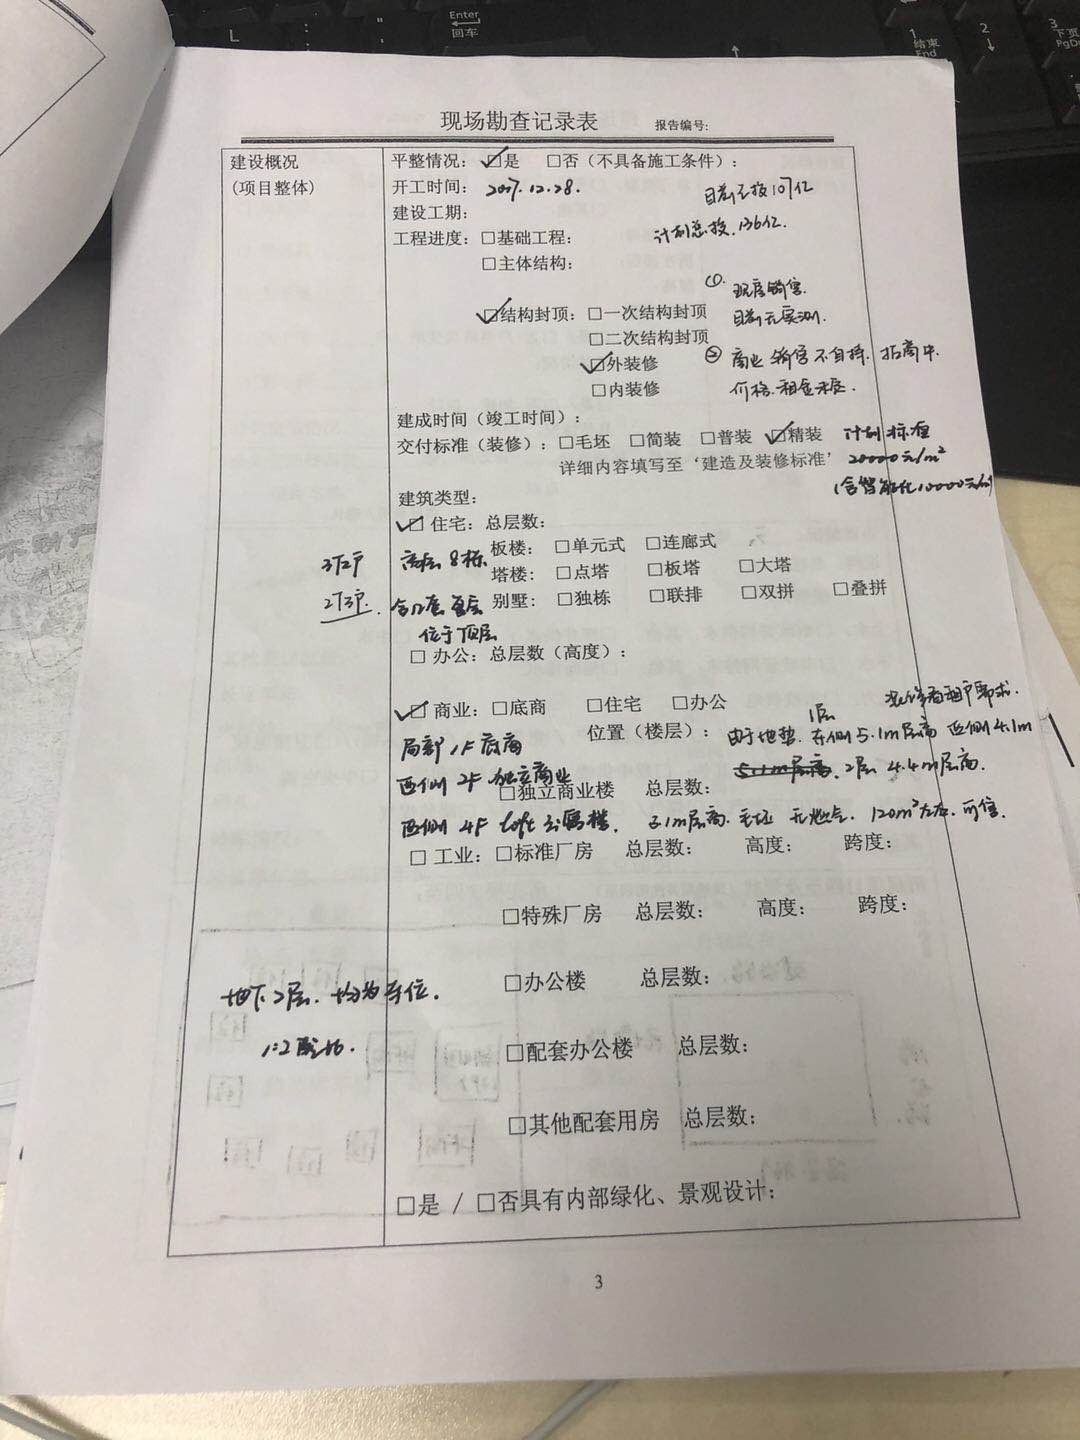 Enter
回车
L
1
结束
End
2
3
下页
PgDn
现场勘查记录表 报告编号:
建设概况
(项目整体)
平整情况: ☑是 □否(不具备施工条件):
开工时间: 2017.12.28. 目前已投107亿
建设工期:
计划总投.136亿.
工程进度: □基础工程:
□主体结构:
① 现房销售.
☑结构封顶: □一次结构封顶 目前无实测.
□二次结构封顶
☑外装修 ② 商业销售不自持.招商中.
□内装修 价格.租金未定.
建成时间(竣工时间):
交付标准(装修): □毛坯 □简装 □普装 ☑精装 计划标准
详细内容填写至‘建造及装修标准’ 20000元/m²
(含智能化10000元/㎡)
建筑类型:
☑ 住宅: 总层数:
3T2户 高层8栋 板楼: □单元式 □连廊式
塔楼: □点塔 □板塔 □大塔
2T3户. 别墅: □独栋 □联排 □双拼 □叠拼
位于顶层
□ 办公: 总层数(高度):
☑ 商业: □底商 □住宅 □办公
局部1F底商 位置(楼层): 1层 由于地势.东侧5.1m层高 西侧4.1m
西侧2F独立商业 5.1m层高. 2层4.4m层高.
□独立商业楼 总层数:
西侧4F loft 毛坯 120m²左右.可售.
□ 工业: □标准厂房 总层数: 高度: 跨度:
□特殊厂房 总层数: 高度: 跨度:
□办公楼 总层数:
地下2层.均为车位.
1:2配比.
□配套办公楼 总层数:
□其他配套用房 总层数:
□是 / □否具有内部绿化、景观设计:
3